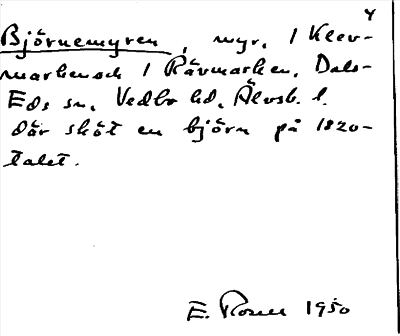 4
Björnemyren, myr, 1 Klev-
marken och 1 Rävmarken, Dals-
Eds sn, Vedbo hd, Älvsb. l.
där sköt en björn på 1820-
talet.
E. 1950